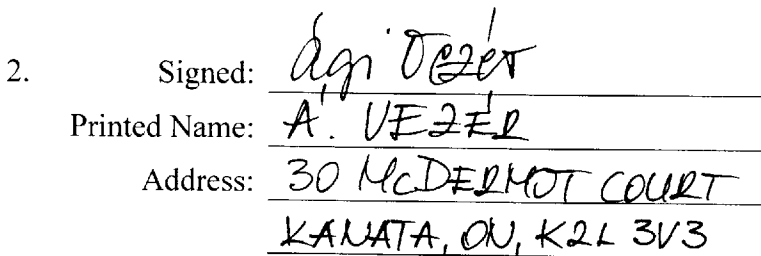 2. Signed: Ági Vezér
Printed Name: Á. VEZÉR
Address: 30 McDERMOT COURT
KANATA, ON, K2L 3V3